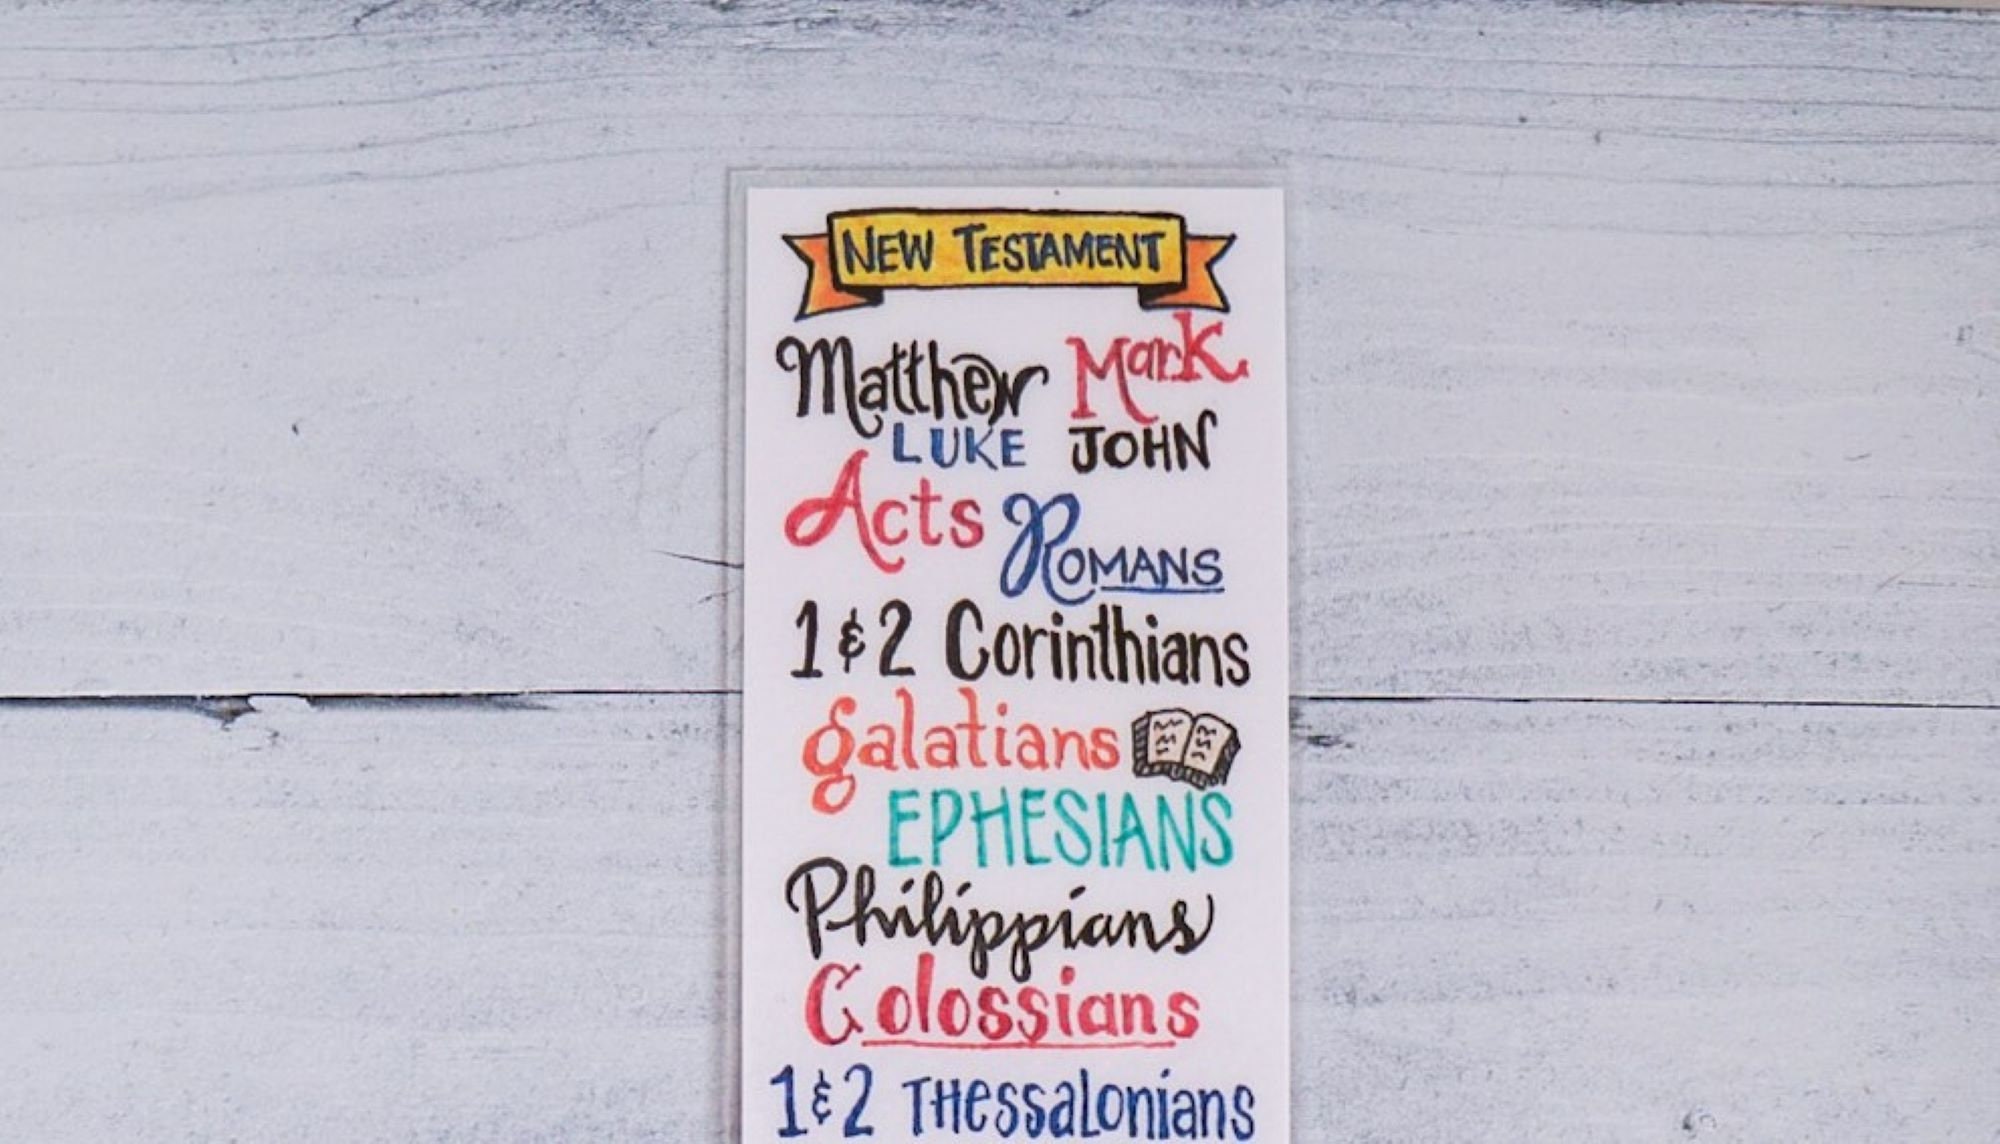 NEW TESTAMENT
Matthew Mark
LUKE JOHN
Acts ROMANS
1 & 2 Corinthians
galatians
EPHESIANS
Philippians
Colossians
1 & 2 THessalonians